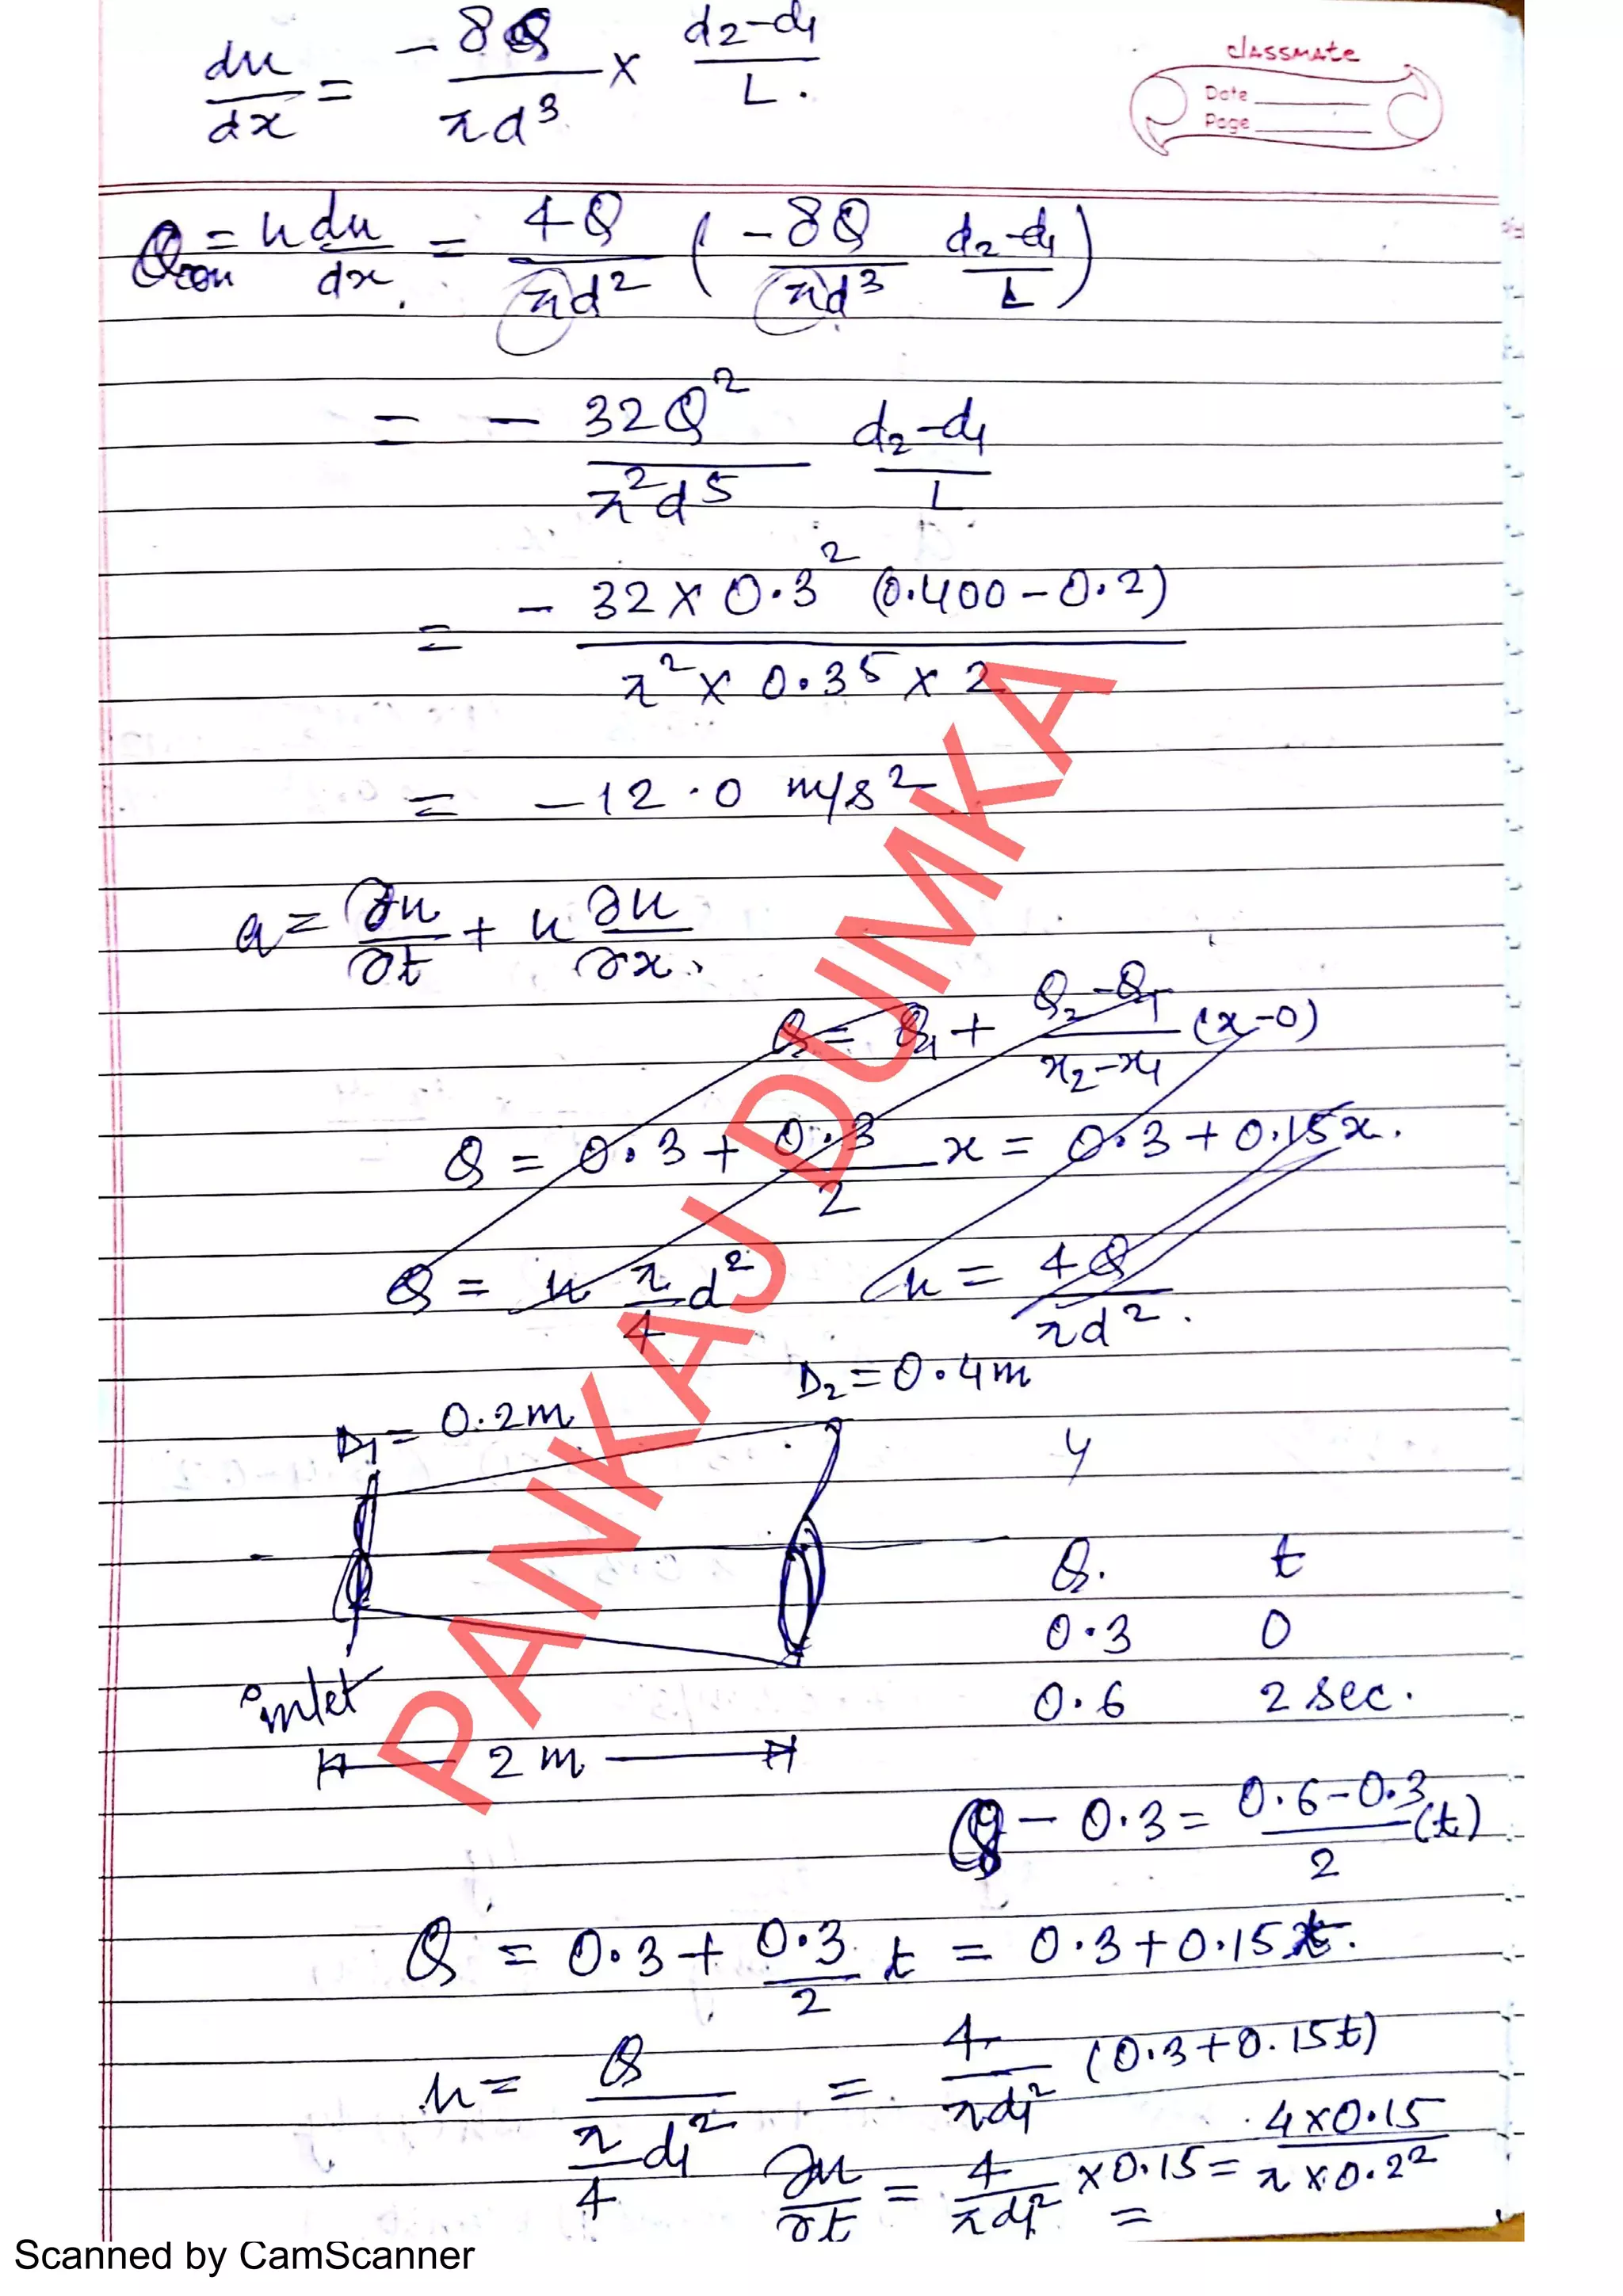 du/dx = -8Q/πd³ × d₂-d₁/L.
classmate
Date
Page
a_con = u du/dx. = 4Q/πd² ( -8Q/πd³ d₂-d₁/L )
= - 32Q²/π²d⁵ d₂-d₁/L
= - 32 × 0.3² (0.400 - 0.2)/π² × 0.3⁵ × 2
= -12.0 m/s²
a = ∂u/∂t + u ∂u/∂x.
Q = Q₁ + Q₂-Q₁/x₂-x₁ (x-0)
Q = 0.3 + 0.3/2 x = 0.3 + 0.15x.
Q = u π/4 d² u = 4Q/πd².
D₁ = 0.2m D₂ = 0.4m
y
Q. t
0.3 0
inlet 0.6 2 sec.
2 m
Q - 0.3 = 0.6-0.3/2 (t)
Q = 0.3 + 0.3/2 t = 0.3 + 0.15t.
u = Q/π/4 d₁² = 4/πd₁² (0.3 + 0.15t)
∂u/∂t = 4/πd₁² × 0.15 = 4×0.15/π×0.2²
=
PANKAJ DUMKA
Scanned by CamScanner